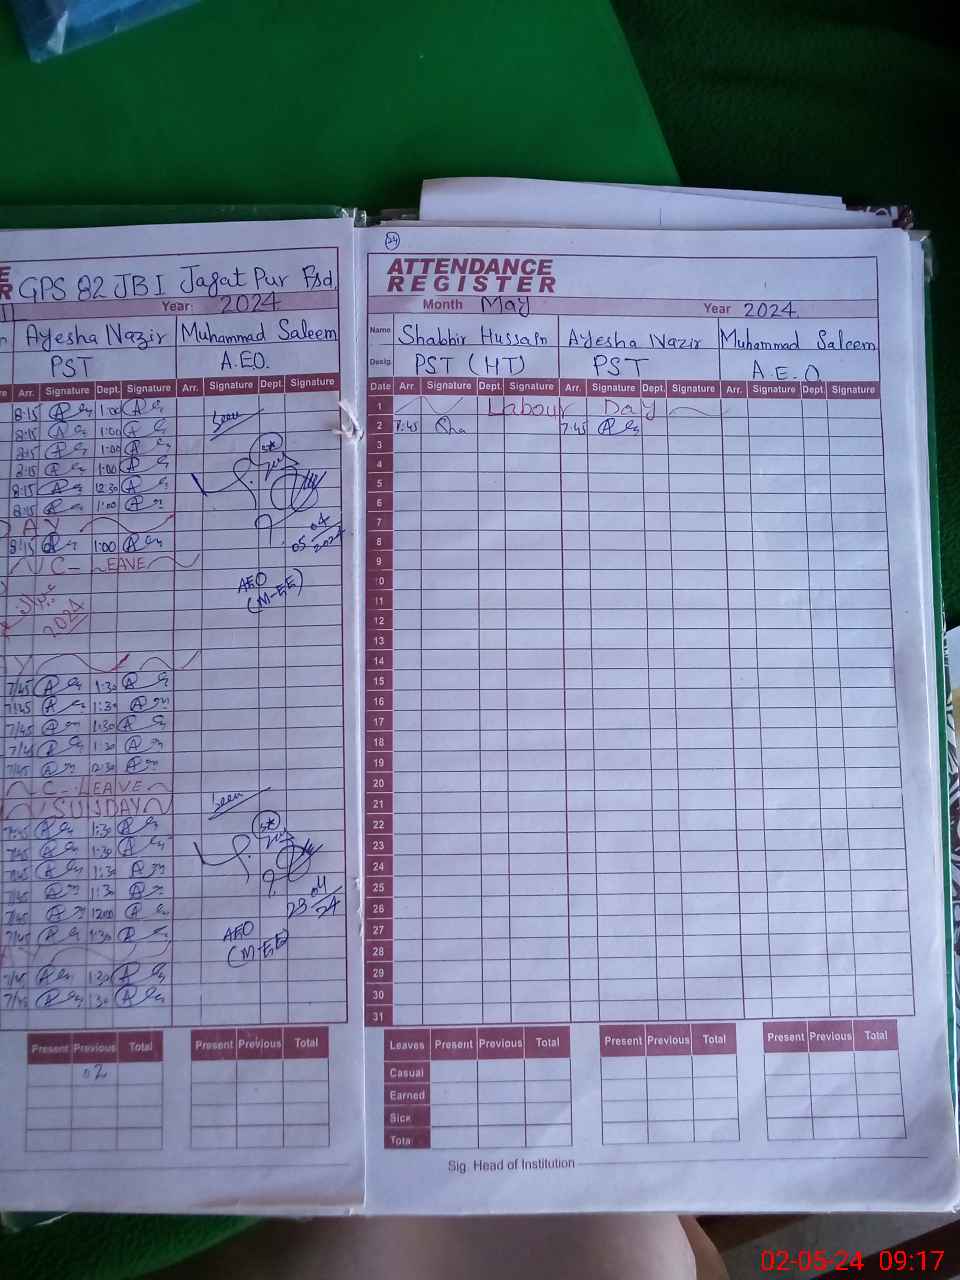 GPS 82 JB I Jagat Pur Fsd.
Year: 2024
Ayesha Nazir Muhammad Saleem
PST A.E.O.
Arr. Signature Dept. Signature Arr. Signature Dept. Signature
8:15 1:00
8:15 1:00
8:15 1:00
8:15 1:00
8:15 12:30
8:15 1:00
8:15 1:00
C-LEAVE
2024
7/45 1:30
7/45 1:30
7/45 1:30
7/45 1:30
7/45 12:30
C-LEAVE
SUNDAY
7:45 1:30
7/45 1:30
7/45 1:30
7/45 1:30
7/45 12:00
7/45 1:30
7/45 1:30
7/45 1:30
seen
05 04
2024
AEO
(M-EE)
seen
23 04
24
AEO
(M-EE)
Present Previous Total Present Previous Total
02
24
ATTENDANCE
REGISTER
Month May Year 2024
Name Shabbir Hussain Ayesha Nazir Muhammad Saleem
Desig. PST (HT) PST A.E.O
Date Arr. Signature Dept. Signature Arr. Signature Dept. Signature Arr. Signature Dept. Signature
1 Labour Day
2 7:45 Sha 7:45
3
4
5
6
7
8
9
10
11
12
13
14
15
16
17
18
19
20
21
22
23
24
25
26
27
28
29
30
31
Leaves Present Previous Total Present Previous Total Present Previous Total
Casual
Earned
Sick
Total
Sig. Head of Institution
02-05-24 09:17